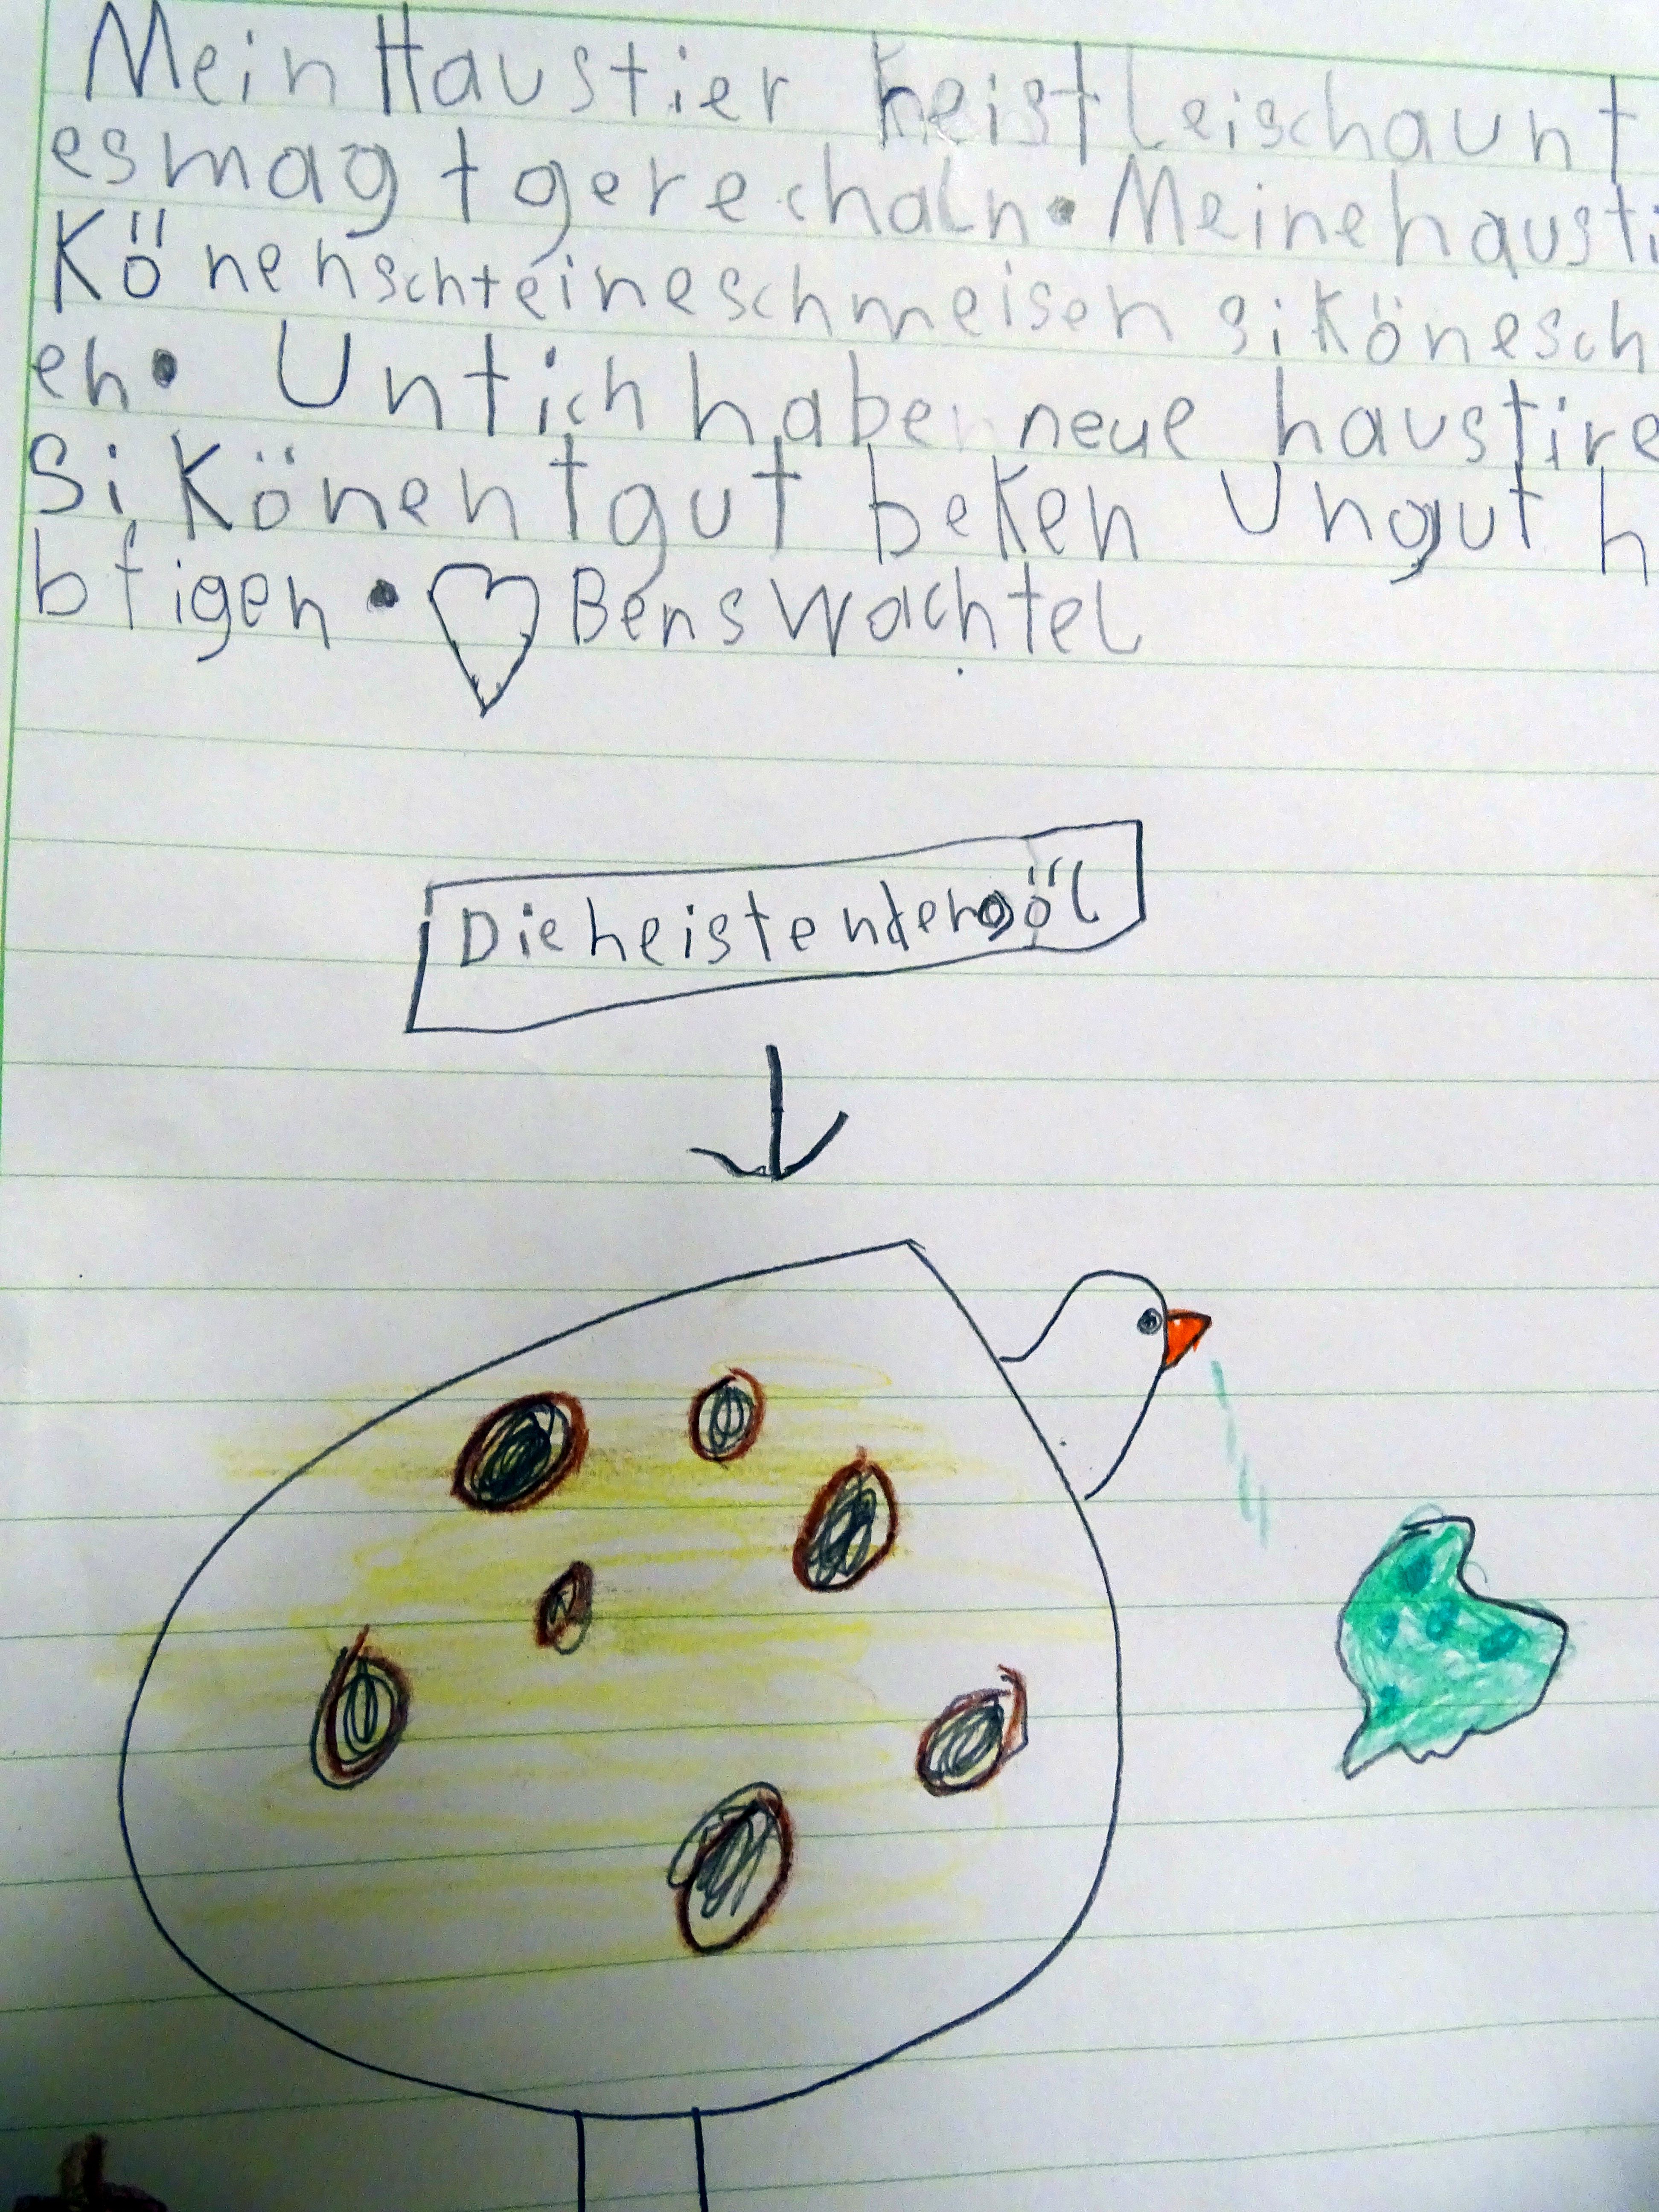 Mein Haustier heist Leischa unt
es mag t gere chaln. Meine hausti
Könen schteine schmeisen si köne sch
en. Unt ich habe neue haustire
Si Könen t gut beken Un gut h
btigen. Bens Wachtel
Die heisten dengöl